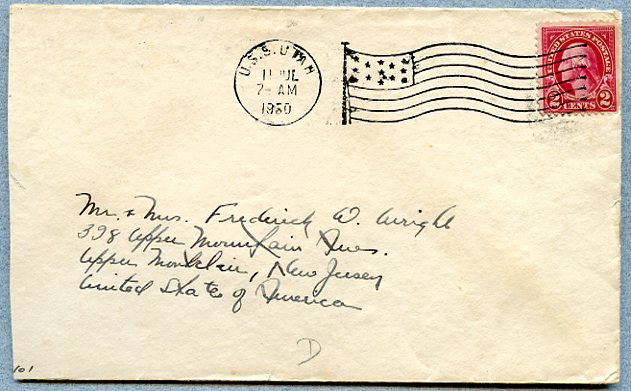 U.S.S. UTAH
11 JUL
7- AM
1930
UNITED STATES POSTAGE
2 CENTS 2
Mr. + Mrs. Frederick W. Wright
398 Upper Mountain Ave.
Upper Montclair, New Jersey
United States of America
D
101